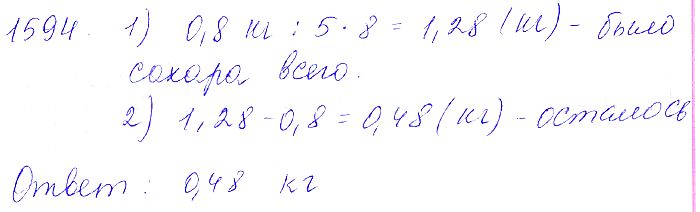 1594. 1) 0,8 кг : 5 · 8 = 1,28 (кг) - было
сахара всего.
2) 1,28 - 0,8 = 0,48 (кг) - осталось
Ответ: 0,48 кг